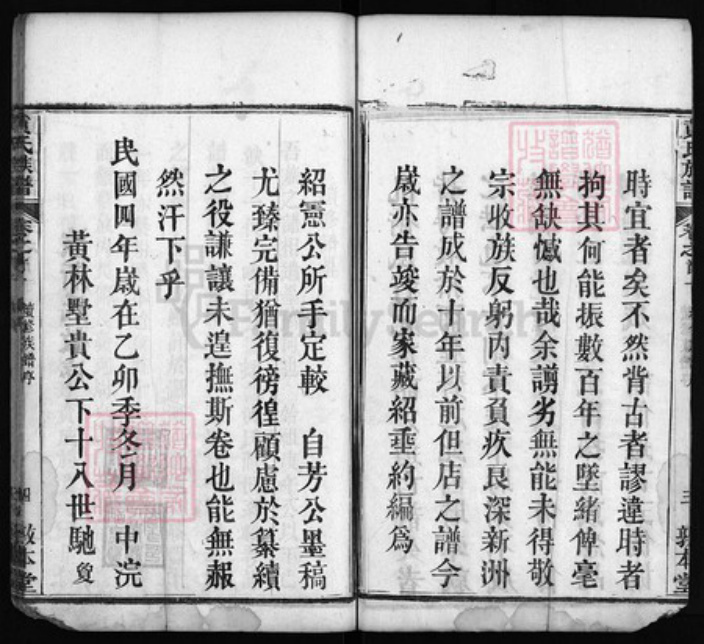 時宜者矣不然背古者謬違時者
拘其何能振數百年之墜緒俾毫
無缺憾也哉余譾劣無能未得敬
宗收族反躬內責負疚良深新洲
之譜成於十年以前但店之譜今
歲亦告竣而家藏紹垂約編爲
三 敦本堂
氏族譜
續修族譜序
四 敦本堂
紹憲公所手定較 自芳公墨稿
尤臻完備猶復徬徨顧慮於纂續
之役謙讓未遑撫斯卷也能無赧
然汗下乎
民國四年歲在乙卯季冬月 中浣
黃林墅貴公下十八世馳
FamilySearch